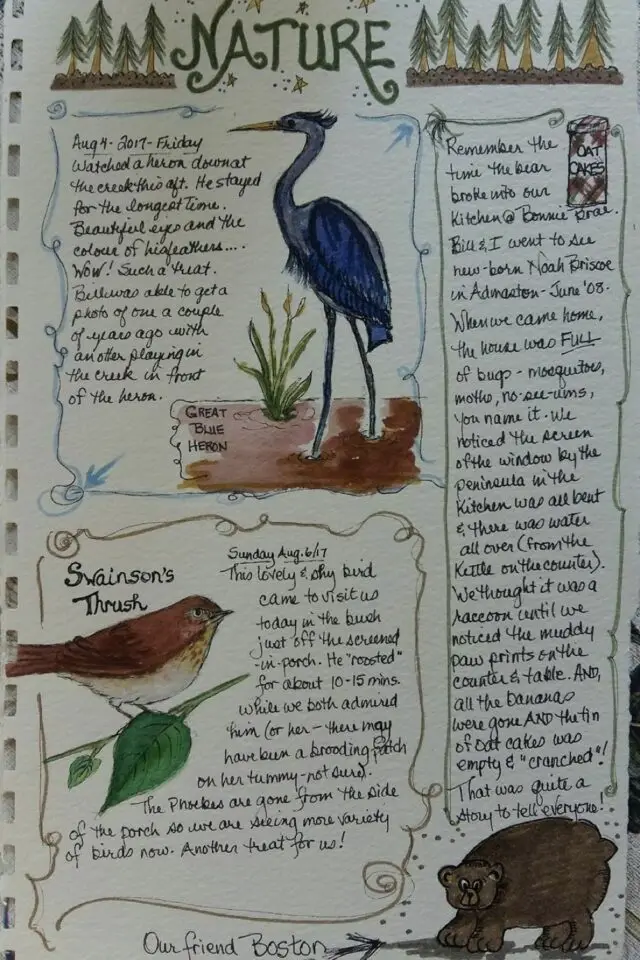 NATURE
Aug 4 - 2017 - Friday
Watched a heron down at
the creek this aft. He stayed
for the longest time.
Beautiful eyes and the
colour of his feathers....
Wow! Such a treat.
Bill was able to get a
photo of one a couple
of years ago with
an otter playing in
the creek in front
of the heron.
GREAT
BLUE
HERON
Remember the
time the bear
broke into our
Kitchen @ Bonnie Brae.
Bill & I went to see
new-born Noah Briscoe
in Admaston - June '08.
When we came home,
the house was FULL
of bugs - mosquitoes,
moths, no-see-ums,
you name it. We
noticed the screen
of the window by the
peninsula in the
Kitchen was all bent
& there was water
all over (from the
Kettle on the counter).
We thought it was a
raccoon until we
noticed the muddy
paw prints on the
counter & table. AND,
all the bananas
were gone AND the tin
of oat cakes was
empty & "crunched"!
That was quite a
story to tell everyone!
OAT
CAKES
Swainson's
Thrush
Sunday Aug. 6/17
This lovely & shy bird
came to visit us
today in the bush
just off the screened
-in-porch. He "roosted"
for about 10-15 mins.
while we both admired
him (or her - there may
have been a brooding patch
on her tummy - not sure).
The Phoebes are gone from the side
of the porch so we are seeing more variety
of birds now. Another treat for us!
Our friend Boston